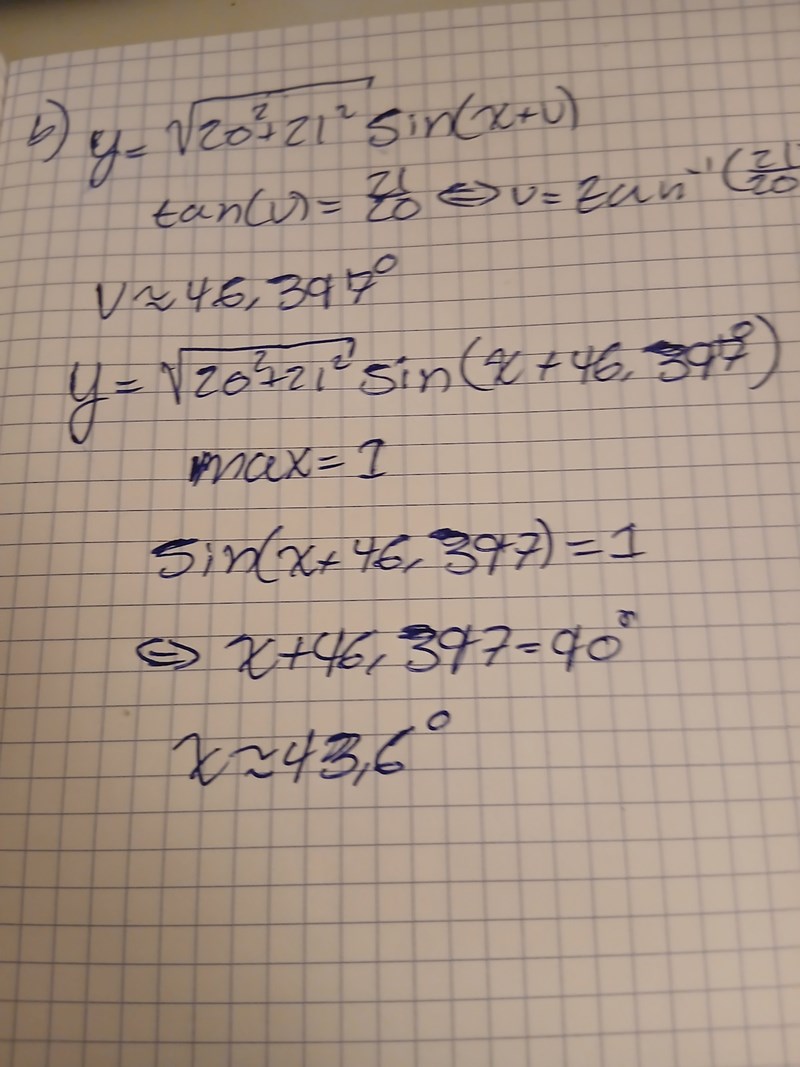 b) y = √20²+21² sin(x+v)
tan(v) = 21/20 ⇔ v = tan⁻¹(21/20
v ≈ 46,397°
y = √20²+21² sin(x + 46,397°)
max = 1
sin(x + 46,397) = 1
⇔ x + 46,397 = 90°
x ≈ 43,6°